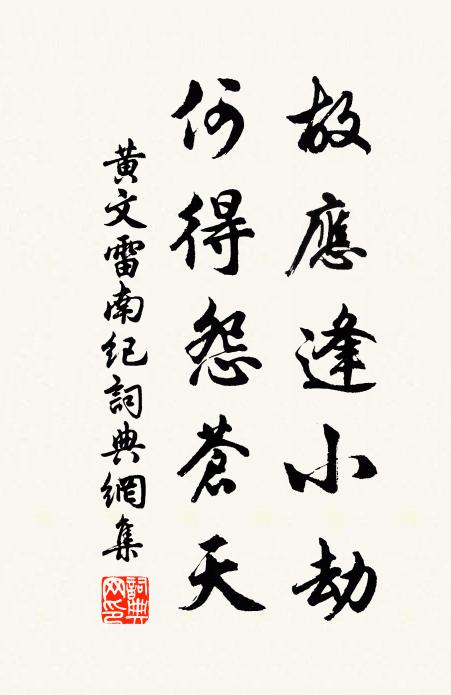 故應逢小劫
何得怨蒼天
黃文雷南紀詞典網集
詞典網印